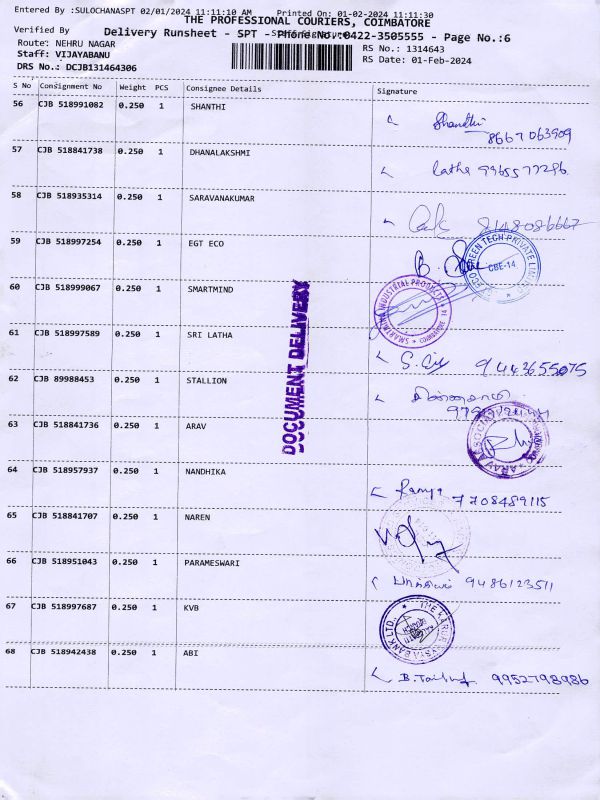 Entered By :SULOCHANASPT 02/01/2024 11:11:10 AM Printed On: 01-02-2024 11:11:30
THE PROFESSIONAL COURIERS, COIMBATORE
Verified By Staff Signature
Delivery Runsheet - SPT - Phone No.:0422-3505555 - Page No.:6
Route: NEHRU NAGAR RS No.: 1314643
Staff: VIJAYABANU RS Date: 01-Feb-2024
DRS No.: DCJB131464306
S No Consignment No Weight PCS Consignee Details Signature
56 CJB 518991082 0.250 1 SHANTHI Shanthi
8667063909
57 CJB 518841738 0.250 1 DHANALAKSHMI
Latha 9965577286
58 CJB 518935314 0.250 1 SARAVANAKUMAR
8148086667
59 CJB 518997254 0.250 1 EGT ECO
ECO GREEN TECH PRIVATE LIMITED
CBE-14
60 CJB 518999067 0.250 1 SMARTMIND
SMARTMIND INDUSTRIAL PRODUCTS
COIMBATORE
61 CJB 518997589 0.250 1 SRI LATHA
9443655075
62 CJB 89988453 0.250 1 STALLION
63 CJB 518841736 0.250 1 ARAV
ARAV ASSOCIATES
64 CJB 518957937 0.250 1 NANDHIKA
Ramya 7708489115
65 CJB 518841707 0.250 1 NAREN
66 CJB 518951043 0.250 1 PARAMESWARI
9486123511
67 CJB 518997687 0.250 1 KVB
THE KARUR VYSYA BANK LTD.,
68 CJB 518942438 0.250 1 ABI
9952798986
DOCUMENT DELIVERY